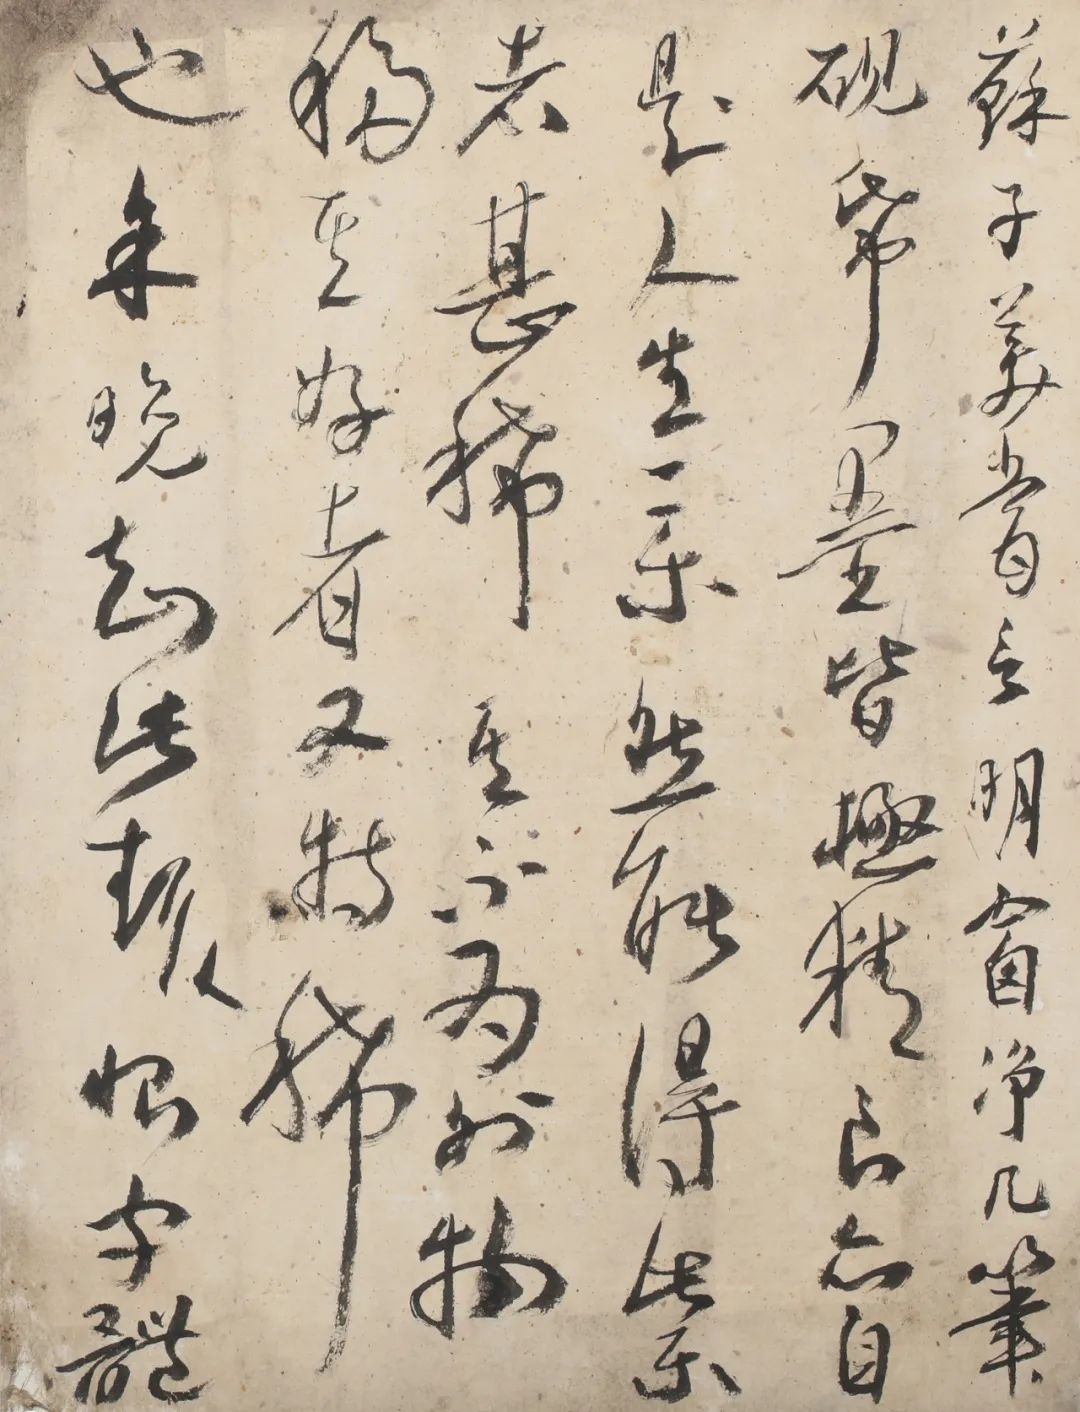 蘇子美嘗言明窗净几筆
硯帋墨皆極精良亦自
是人生一樂然能得此樂
者甚稀其不為外物
移其好者又特稀
也余晚知此趣恨字體